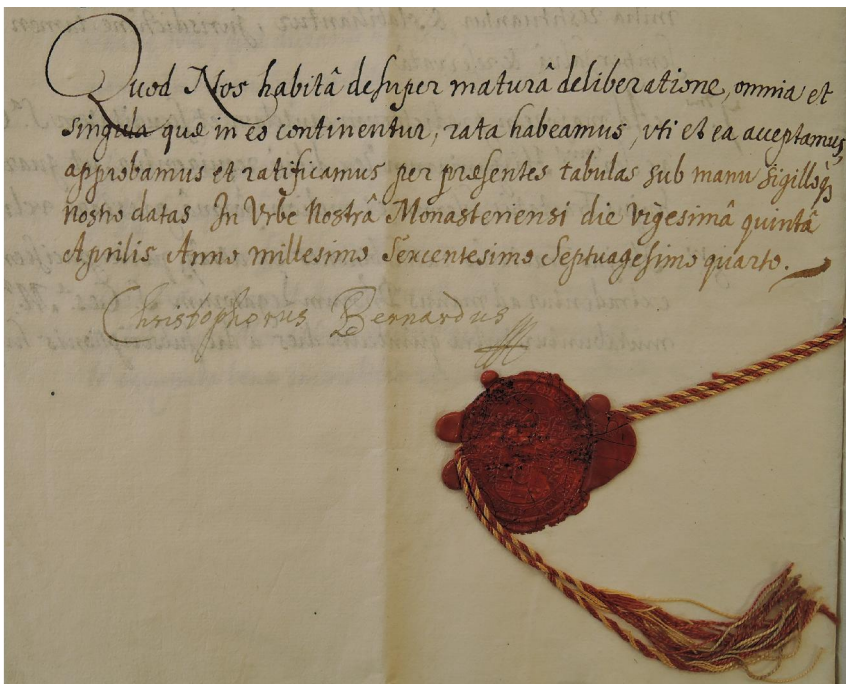 Quod Nos habitâ desuper maturâ deliberatione, omnia et
singula quæ in eo continentur, rata habeamus, uti et ea acceptamus,
approbamus et ratificamus per præsentes tabulas sub manu sigilloq₃
nostro datas In Urbe Nostrâ Monasteriensi die vigesimâ quintâ
Aprilis Anno millesimo Sexcentesimo Septuagesimo quarto.
Christophorus Bernardus